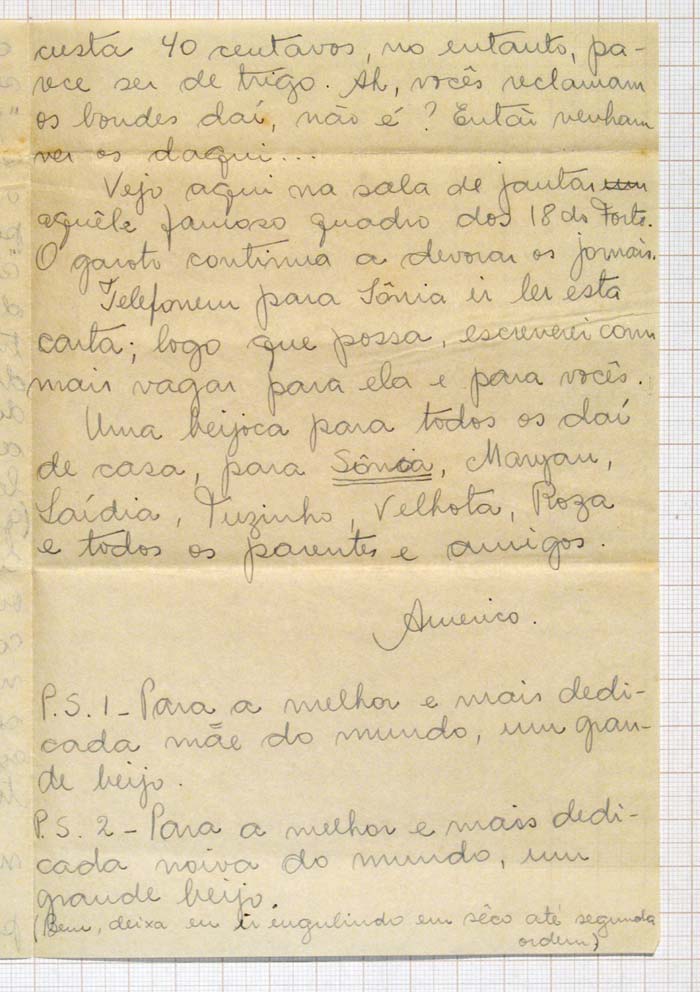 custa 40 centavos, no entanto, pa-
rece ser de trigo. Ah, vocês reclamam
os bondes daí, não é? Então venham
ver os daqui...
Vejo aqui na sala de jantar um
aquêle famoso quadro dos 18 do Forte.
O garoto continua a devorar os jornais.
Telefonem para Sônia ir ler esta
carta; logo que possa, escreverei com
mais vagar para ela e para vocês.
Uma beijoca para todos os daí
de casa, para Sônia, Maryan,
Saídia, Tuzinho, Velhota, Roza
e todos os parentes e amigos.
Americo.
P.S. 1 - Para a melhor e mais dedi-
cada mãe do mundo, um gran-
de beijo.
P.S. 2 - Para a melhor e mais dedi-
cada noiva do mundo, um
grande beijo.
(Bem, deixa eu ir engulindo em sêco até segunda
ordem)